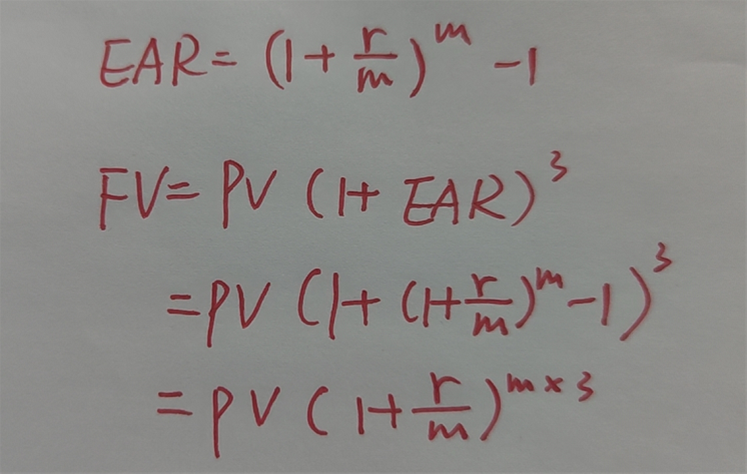 EAR = (1 + r/m)^m - 1
FV = PV (1 + EAR)^3
= PV (1 + (1 + r/m)^m - 1)^3
= PV (1 + r/m)^(m × 3)